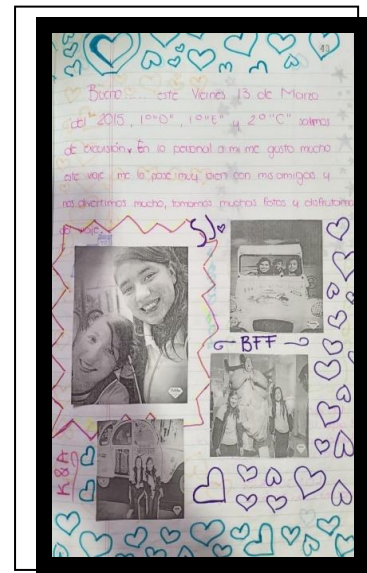 43
Bueno..... este Viernes 13 de Marzo
del 2015, 1º"D", 1º"E" y 2º"C" salimos
de excursión. En lo personal a mi me gusto mucho
este viaje me lo pase muy bien con mis amigos y
nos divertimos mucho, tomamos muchas fotos y disfrutamos
viaje.
BFF
K&A